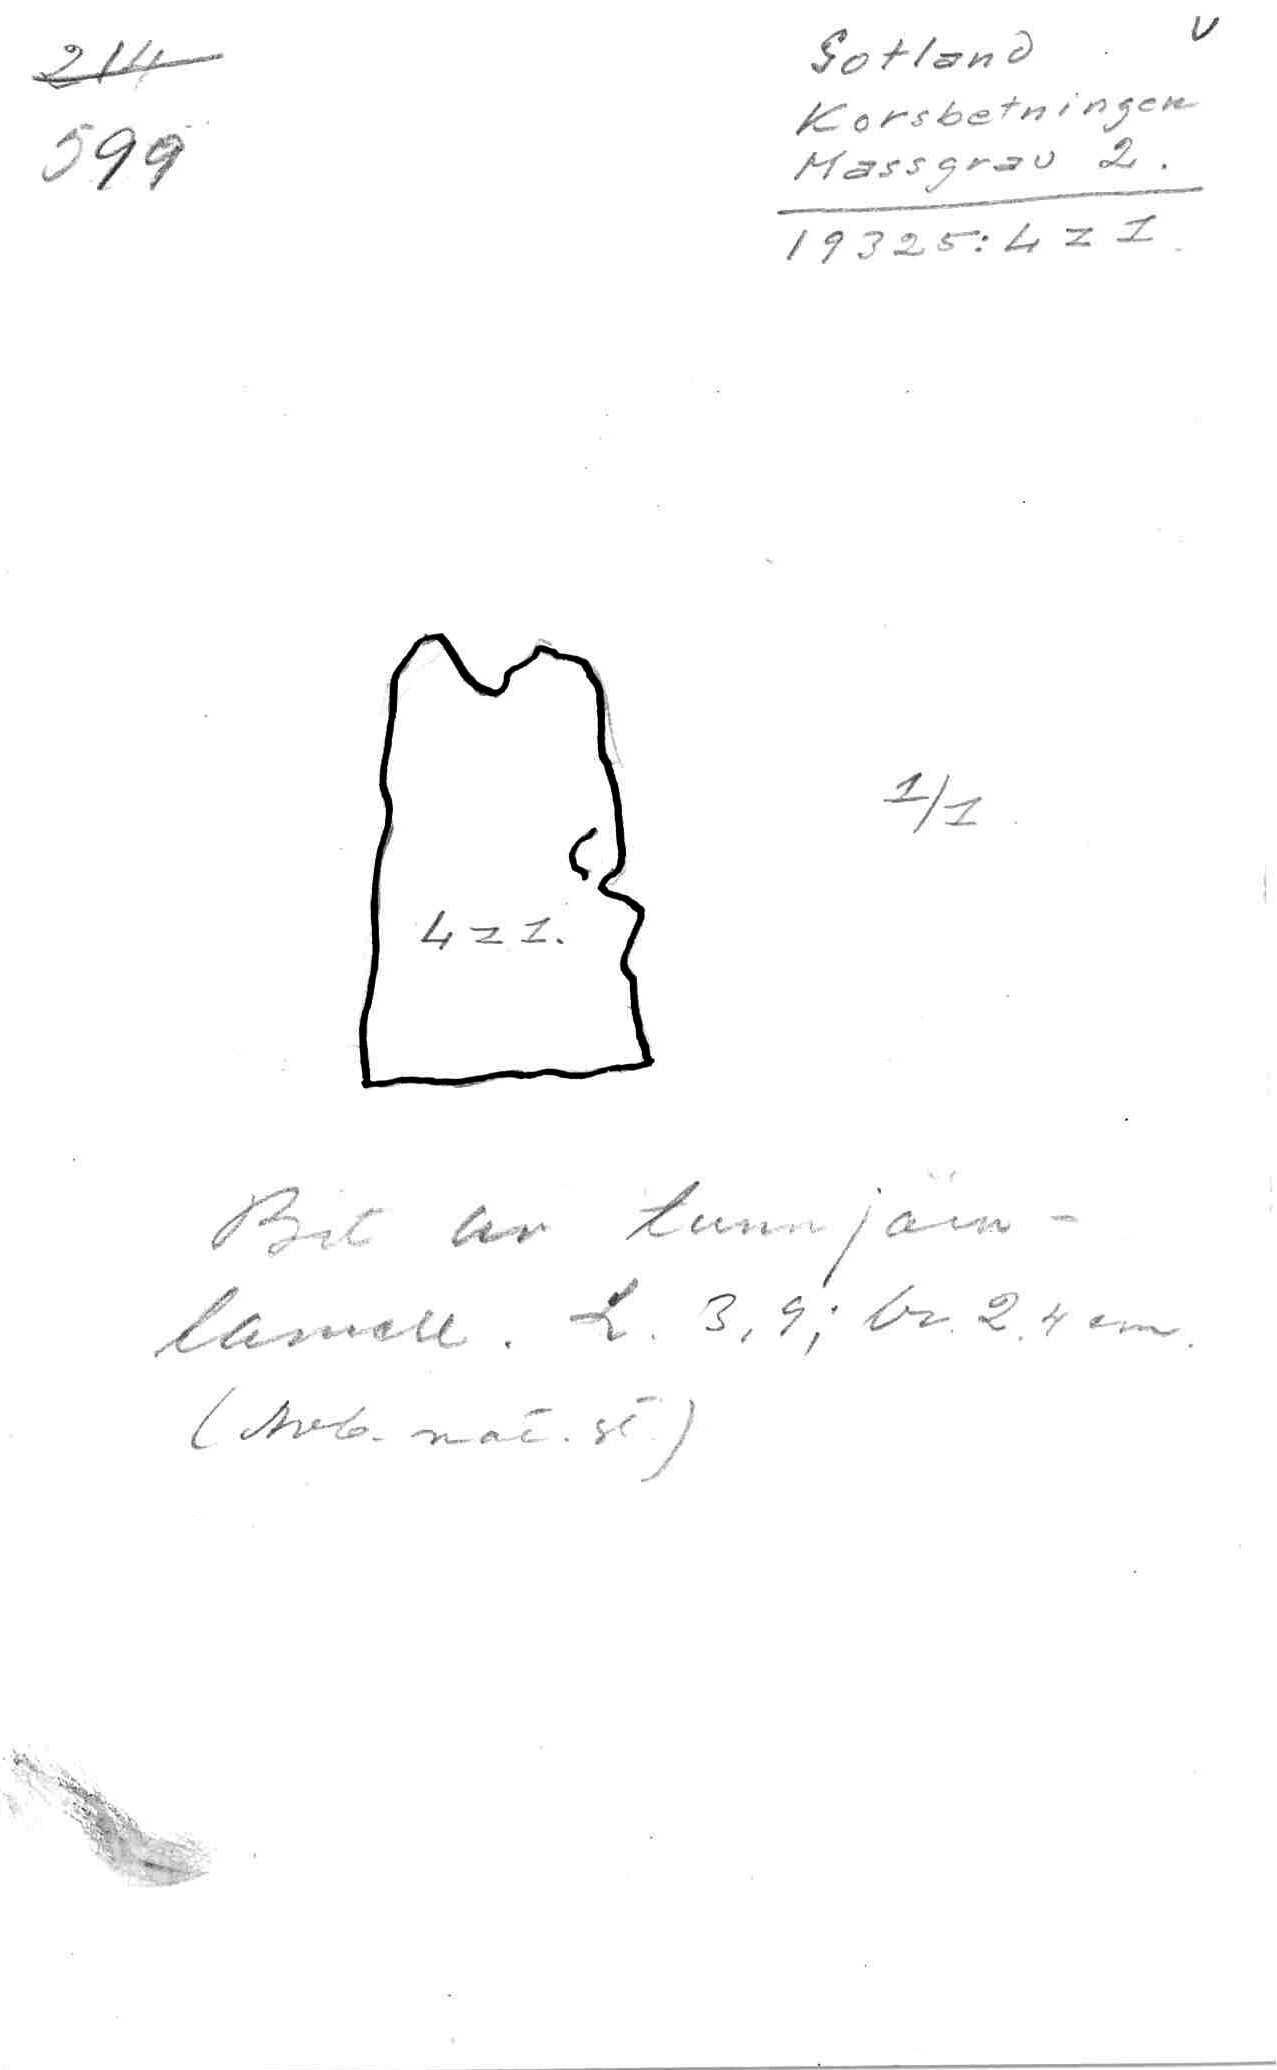 214
599
Gotland v
Korsbetningen
Massgrav 2.
19325: 4 z 1.
1/1
4 z 1.
Bit av tunn järn-
lamell. L. 3,9; br. 2,4 cm.
(Avb. nat. st.)